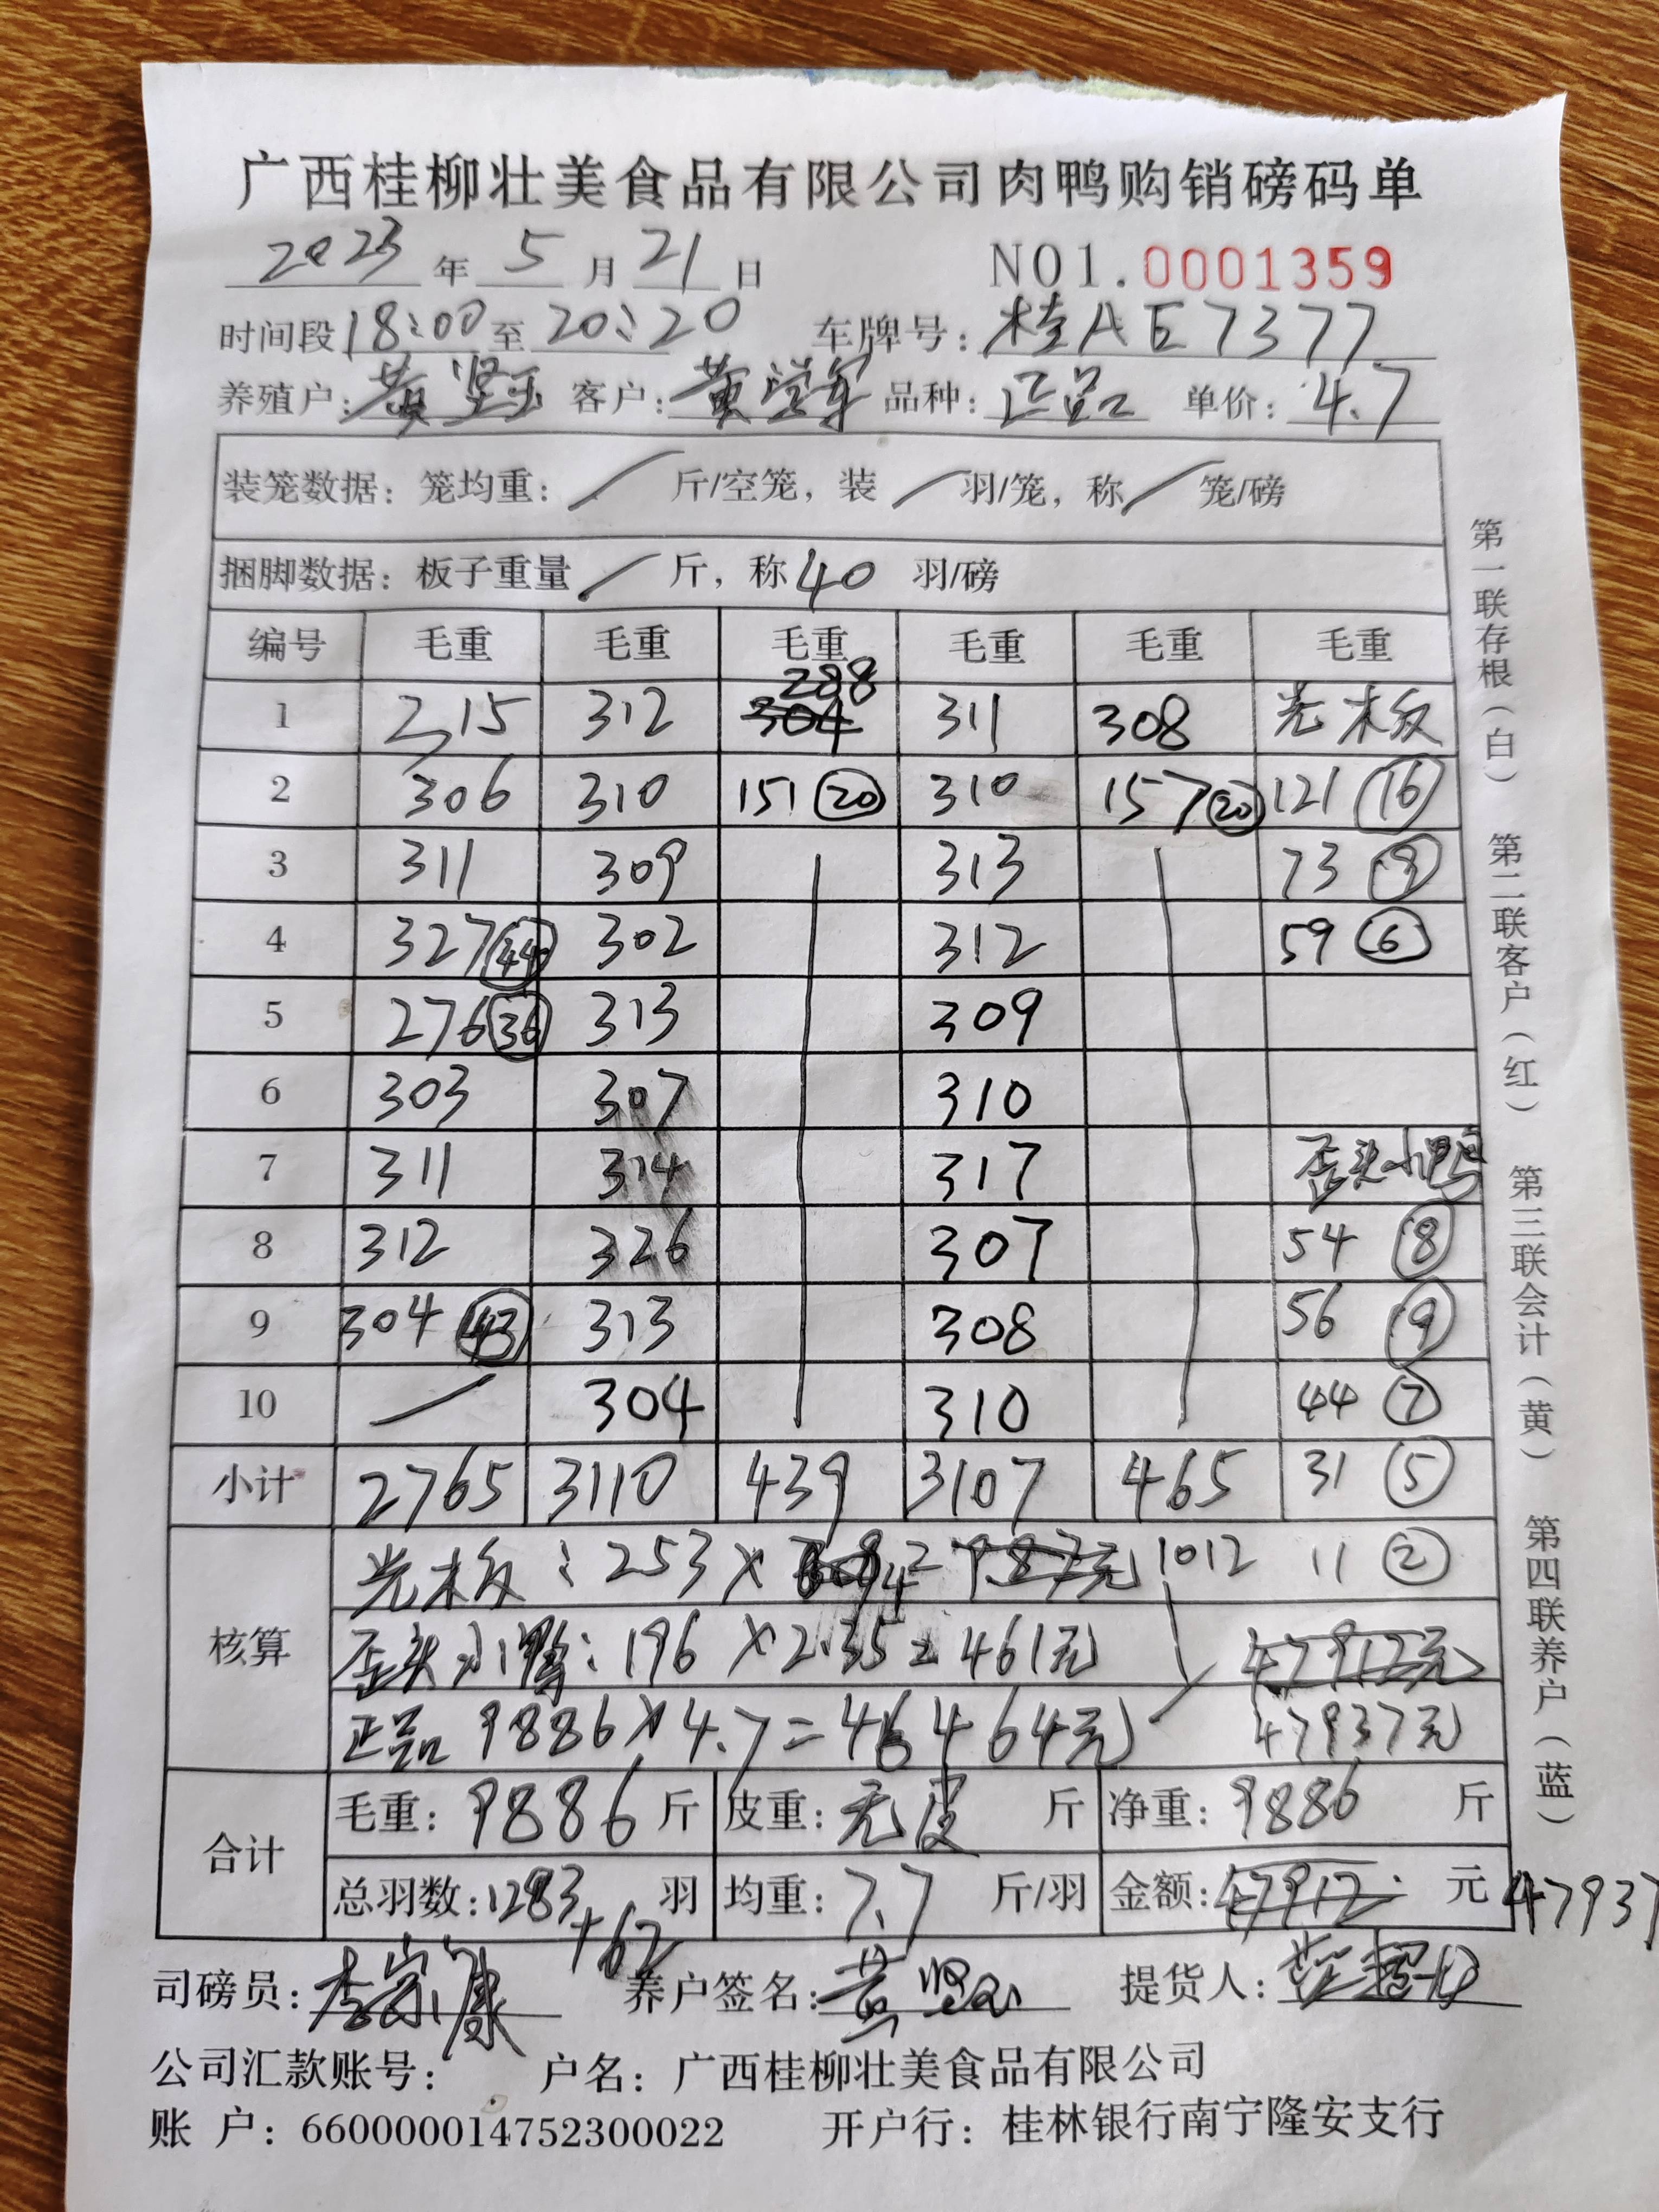 广西桂柳壮美食品有限公司肉鸭购销磅码单
2023年5月21日 NO1.0001359
时间段18:00至20:20 车牌号:桂AE7377
养殖户:黄坚玉 客户:黄 军 品种:正品 单价:4.7
装笼数据:笼均重:/斤/空笼,装/羽/笼,称/笼/磅
捆脚数据:板子重量/斤,称40羽/磅
编号 毛重 毛重 毛重 毛重 毛重 毛重
288
1 215 312 304 311 308 光木板
2 306 310 151 20 310 157 20 121 16
3 311 309 313 73 9
4 327 44 302 312 59 6
5 276 36 313 309
6 303 307 310
7 311 314 317 歪头小鸭
8 312 326 307 54 8
9 304 43 313 308 56 9
10 / 304 310 44 7
小计 2765 3110 439 3107 465 31 5
核算 光木板:253× 4= 987元 1012 11 2
歪头小鸭:196×2.35=461元 47912元
正品 9886×4.7=46464元 47937元
合计 毛重:9886斤 皮重:无皮斤 净重:9886斤
总羽数:1283羽 均重:7.7斤/羽 金额:47912元 47937
+62
司磅员:李 康 养户签名:黄坚玉 提货人:
公司汇款账号: 户名:广西桂柳壮美食品有限公司
账 户:660000014752300022 开户行:桂林银行南宁隆安支行
第一联存根(白) 第二联客户(红) 第三联会计(黄) 第四联养户(蓝)